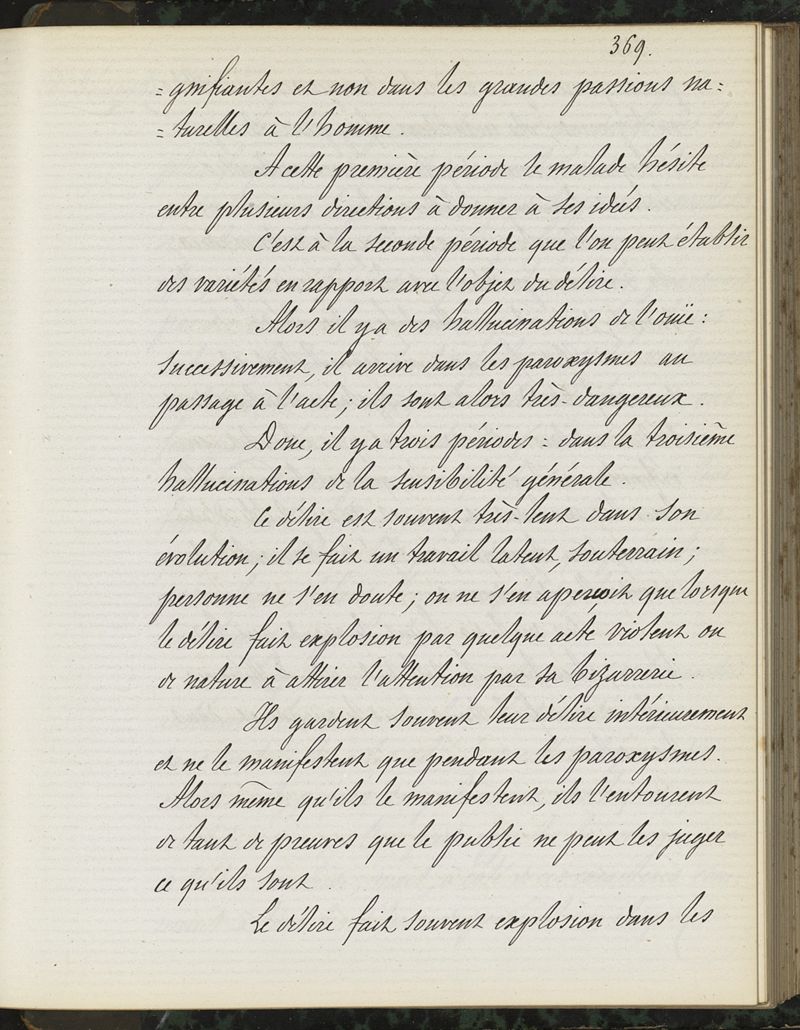 369.
= gnifiantes et non dans les grandes passions na=
= turelles à l'homme.
A cette première période le malade hésite
entre plusieurs directions à donner à ses idées.
C'est à la seconde période que l'on peut établir
des variétés en rapport avec l'objet du délire.
Alors il y a des hallucinations de l'ouïe :
successivement, il arrive dans les paroxysmes au
passage à l'acte ; ils sont alors très-dangereux.
Donc, il y a trois périodes = dans la troisième
hallucinations de la sensibilité générale.
Ce délire est souvent très-lent dans son
évolution ; il se fait un travail latent, souterrain ;
personne ne s'en doute ; on ne s'en aperçoit que lorsque
le délire fait explosion par quelque acte violent ou
de nature à attirer l'attention par sa bizarrerie.
Ils gardent souvent leur délire intérieurement
et ne le manifestent que pendant les paroxysmes.
Alors même qu'ils le manifestent, ils l'entourent
de tant de preuves que le public ne peut les juger
ce qu'ils sont.
Le délire fait souvent explosion dans les